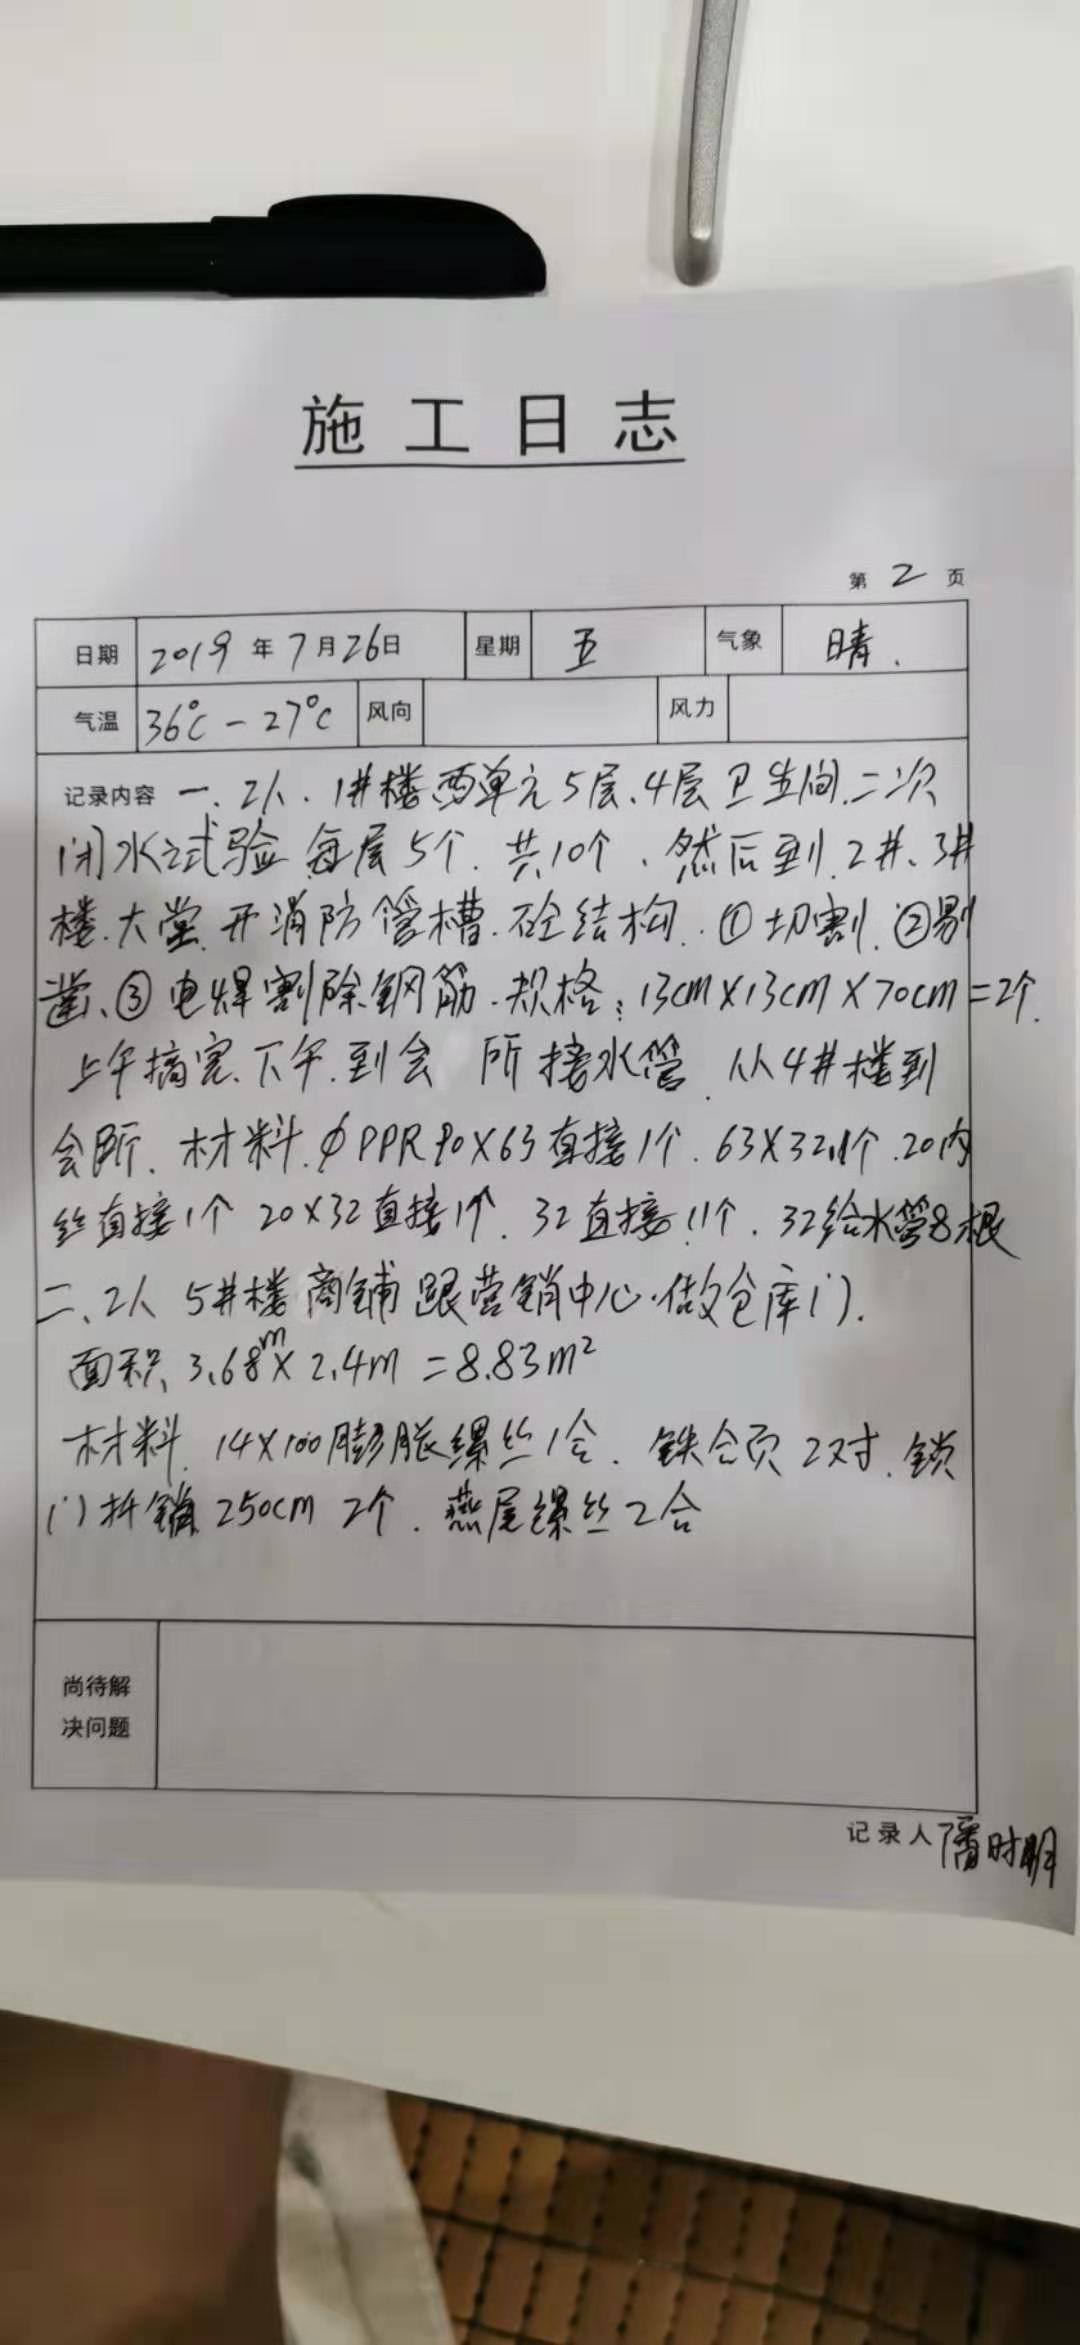 施工日志
第 2 页
日期 2019年7月26日 星期 五 气象 晴.
气温 36℃-27℃ 风向 风力
记录内容 一、2人、1#楼两单元5层、4层卫生间二次
闭水试验每层5个.共10个、然后到2#、3#
楼.大堂.开消防管槽.砼结构.①切割.②剔
凿、③电焊割除钢筋.规格:13cm×13cm×70cm=2个.
上午搞完.下午.到会所接水管.从4#楼到
会所.材料.φPPR90×63直接1个.63×32 1个.20内
丝直接1个 20×32直接1个.32直接11个.32给水管8根
二、2人 5#楼商铺跟营销中心.做仓库门.
面积.3.68m×2.4m=8.83m²
材料.14×100膨胀螺丝1合.铁合页2对.锁
门插销250cm 2个.燕尾螺丝2合
尚待解
决问题
记录人 潘时明